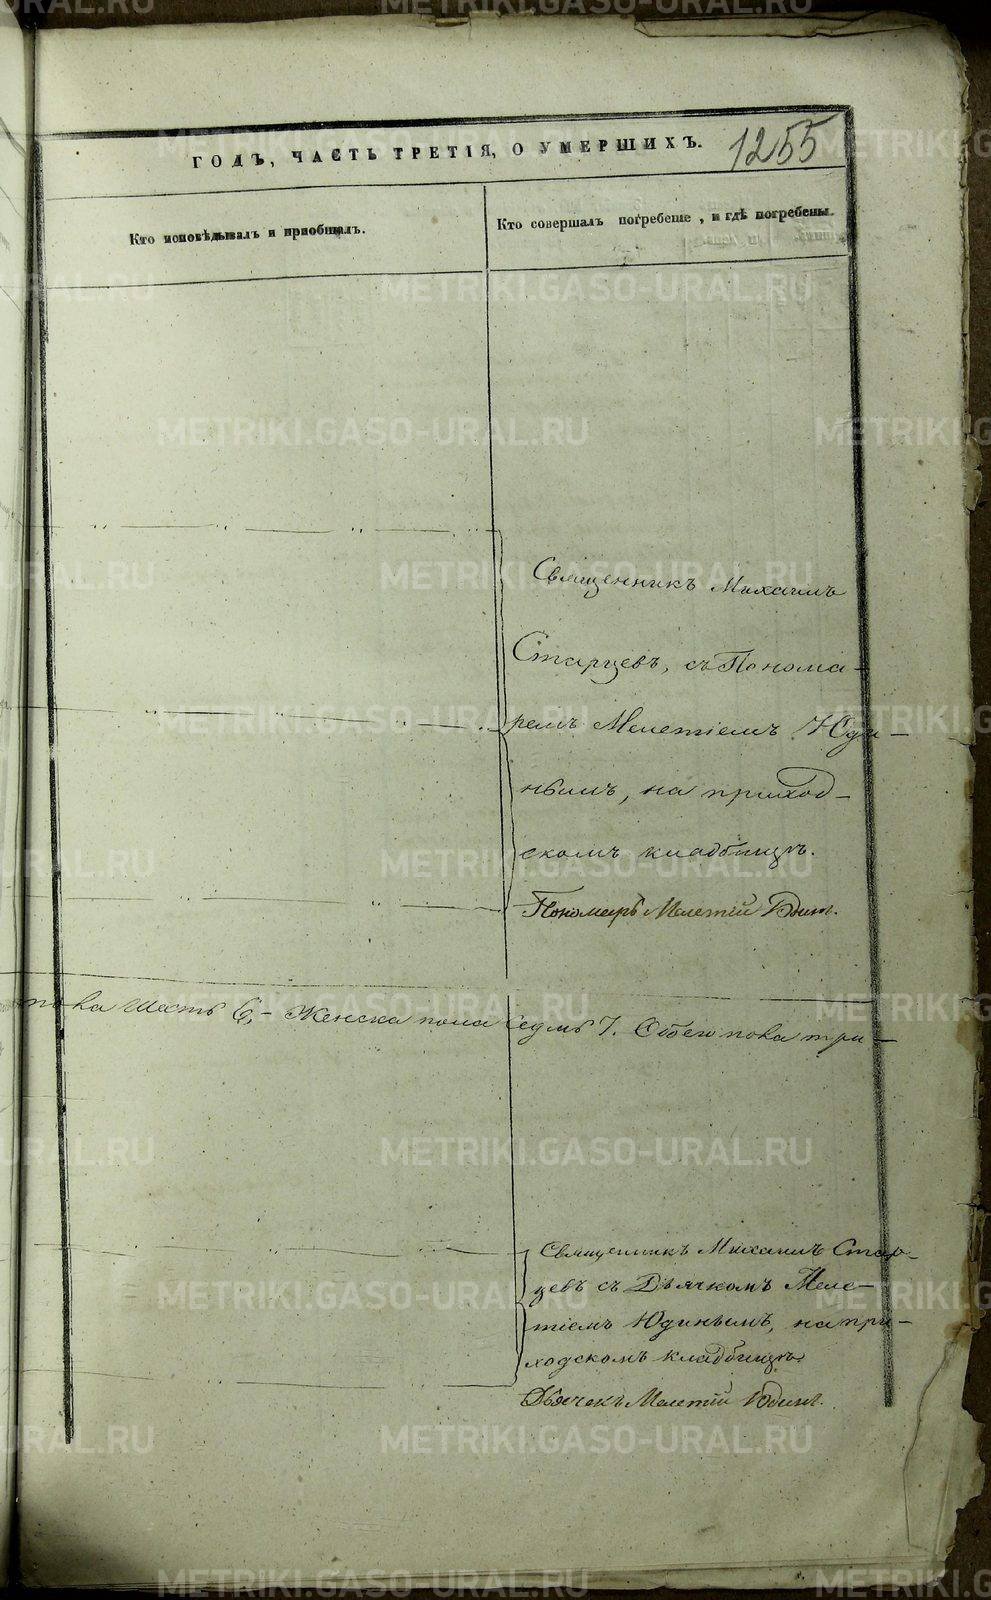 ГОДЪ, ЧАСТЬ ТРЕТІЯ, О УМЕРШИХЪ.
1255
Кто исповѣдывалъ и пріобщалъ.
Кто совершалъ погребеніе, и гдѣ погребены.
Священникъ Михаилъ
Старцевъ, съ Понома-
ремъ Мелетіемъ Юди-
нымъ, на приход-
скомъ кладбищѣ.
Пономарь Мелетій Юдинъ.
пола шесть 6,- Женска пола седмь 7. Обоего пола три-
Священникъ Михаилъ Стар-
цевъ съ Дьячкомъ Меле-
тіемъ Юдинымъ, на при-
ходскомъ кладбищѣ.
Дьячекъ Мелетій Юдинъ.
METRIKI.GASO-URAL.RU